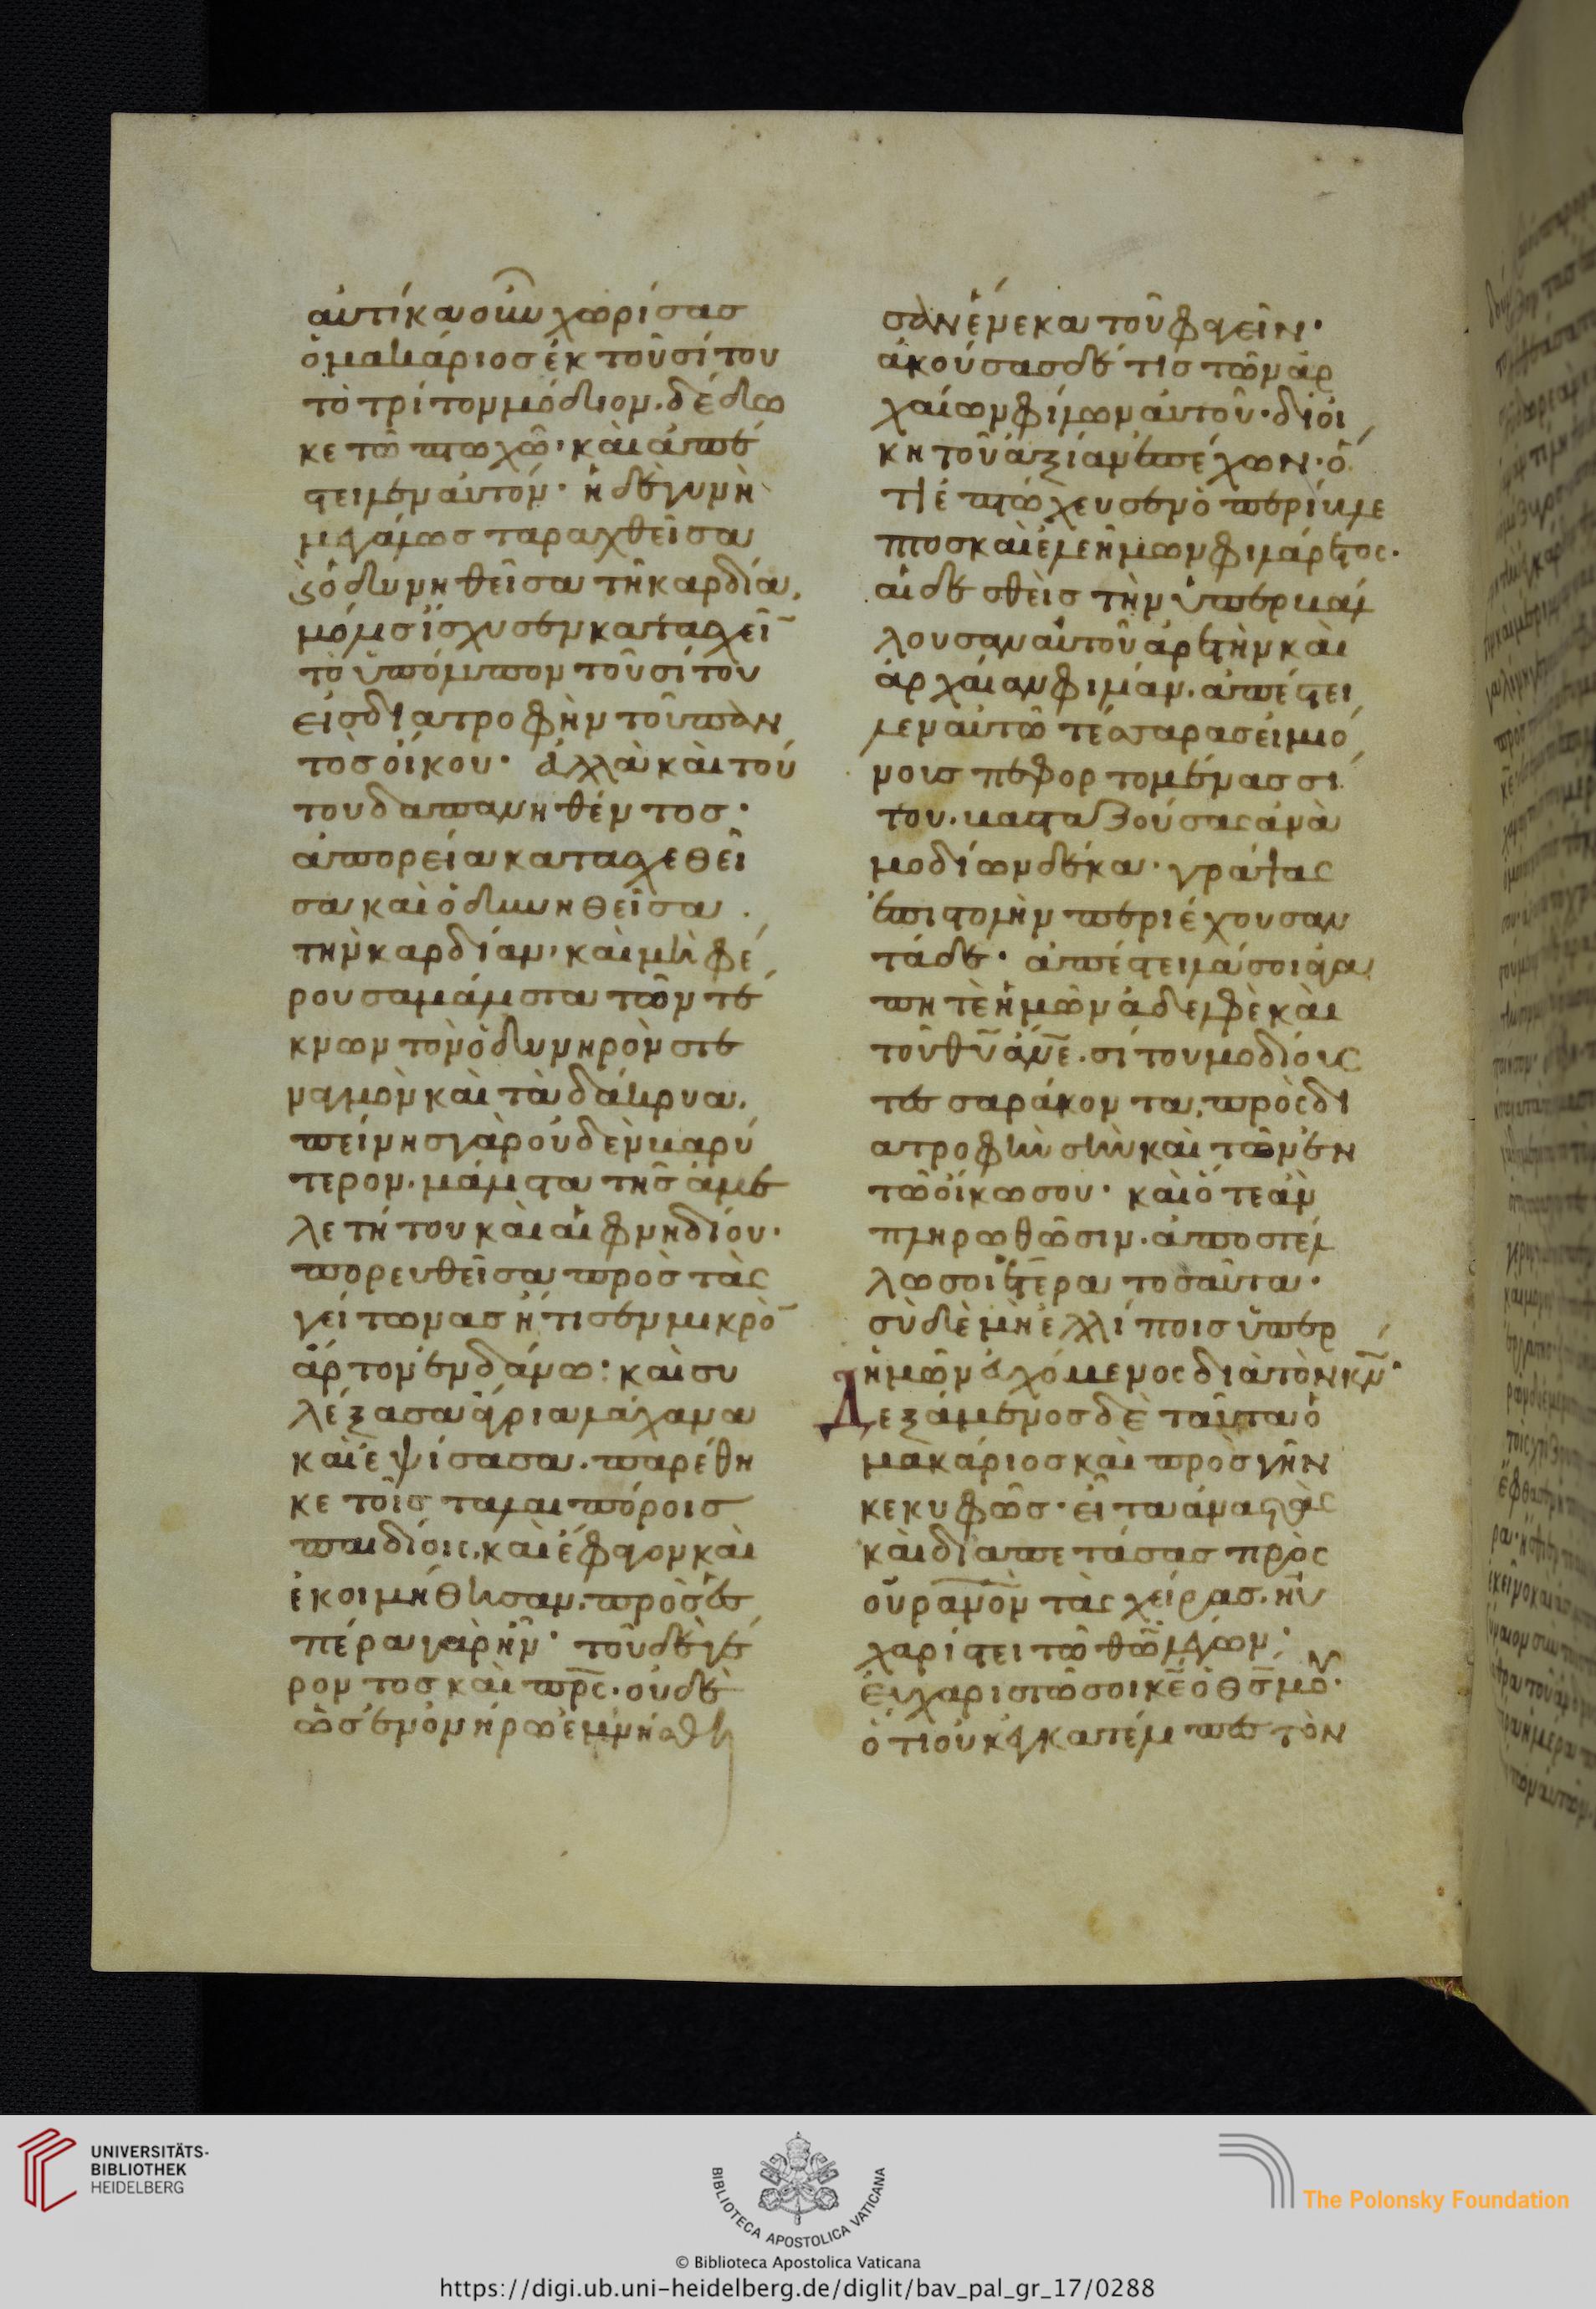 αὐτίκα οὖν χωρίσας
ὁ μακάριος ἐκ τοῦ σίτου
τὸ τρίτον μόδιον. δέδω
κε τῶ πτωχῶ· καὶ ἀπέ
στειλεν αὐτόν· ἡ δὲ γυνὴ
μεγάλως ταραχθεῖσα
καρδία,
μόνον ἴσχυσεν κατασχεῖ
τὸ ὑπόλοιπον τοῦ σίτου
εἰς διατροφὴν τοῦ παν
τὸς οἴκου· ἀλλὰ καὶ τού
του δαπανηθέντος·
ἀπορεία κατασχεθεῖ
σα καὶ ὀδυνηθεῖσα
τὴν καρδίαν· καὶ μὴ φέ
ρουσα μάλιστα τῶν τέ
κνων τὸν ὀδυνηρὸν στε
ναγμὸν καὶ τὰ δάκρυα.
πείνης γὰρ οὐδὲν βαρύ
τερον. μάλιστα τῆς ἀμε
λετήτου καὶ αἰφνηδίου·
πορευθεῖσα πρὸς τὰς
γείτωνας ἤτησεν μικρὸ
ἄρτον ἐν δάνω· καὶ συ
λέξασα ἄγρια λάχανα
καὶ ἑψίσασα. παρέθη
κε τοῖς ταλαιπόροις
παιδίοις. καὶ ἔφαγον καὶ
ἐκοιμήθησαν. πρὸς ἑσ
πέραν γὰρ ἦν· τοῦ δὲ γέ
ροντος καὶ πρς. οὐδὲ
ὡς ἐν ὀνήρω ἐμνήσθη
σαν ἕνεκα τοῦ φαγεῖν·
ἀκούσας δέ τις τῶν ἀρ
χαίων φίλων αὐτοῦ· διοι
κητοῦ ἀξίαν ἐπέχων· ὅ
τι ἐπτώχευσεν ὁ περίβλε
πτος καὶ ἐλεήμων φιλάρετος·
αἰδεσθεὶς τὴν ὑπερβάλ
λουσαν αὐτοῦ ἀρετὴν καὶ
ἀρχαίαν φιλίαν. ἀπέστει
λεν αὐτῶ τέσσαρας εἰμιό
νους πεφορτομένας σί
του. βασταζούσας ἀνὰ
μοδίων δέκα· γράψας
ἐπιστολὴν περιέχουσαν
τάδε· ἀπέστειλά σοι ἀγα
πητὲ ἡμῶν ἀδελφὲ καὶ
τοῦ θυ ἄνε. σίτου μοδίους
τεσσαράκοντα, πρὸς δι
ατροφὴν σὴν καὶ τῶν ἐν
τῶ οἴκω σου· καὶ ὅτε ἂν
πληρωθῶσιν. ἀποστέλ
λω σοι ἕτερα τοσαῦτα·
σὺ δὲ μὴ ἐλλίποις ὑπὲρ
ἡμῶν εὐχόμενος διὰ τὸν κν·
Δεξάμενος δὲ ταῦτα ὁ
μακάριος καὶ πρὸς γῆν
κεκυφῶς· εἶτα ἀναστὰς
καὶ διαπετάσας πρὸς
οὐρανὸν τὰς χεῖρας. ηὐ
χαρίστει τῶ θῶ λέγων·
εὐχαριστῶ σοι κε ὁ θς μου·
ὅτι οὐκ ἐγκατέλιπες τὸν
UNIVERSITÄTS-
BIBLIOTHEK
HEIDELBERG
BIBLIOTECA APOSTOLICA VATICANA
The Polonsky Foundation
© Biblioteca Apostolica Vaticana
https://digi.ub.uni-heidelberg.de/diglit/bav_pal_gr_17/0288